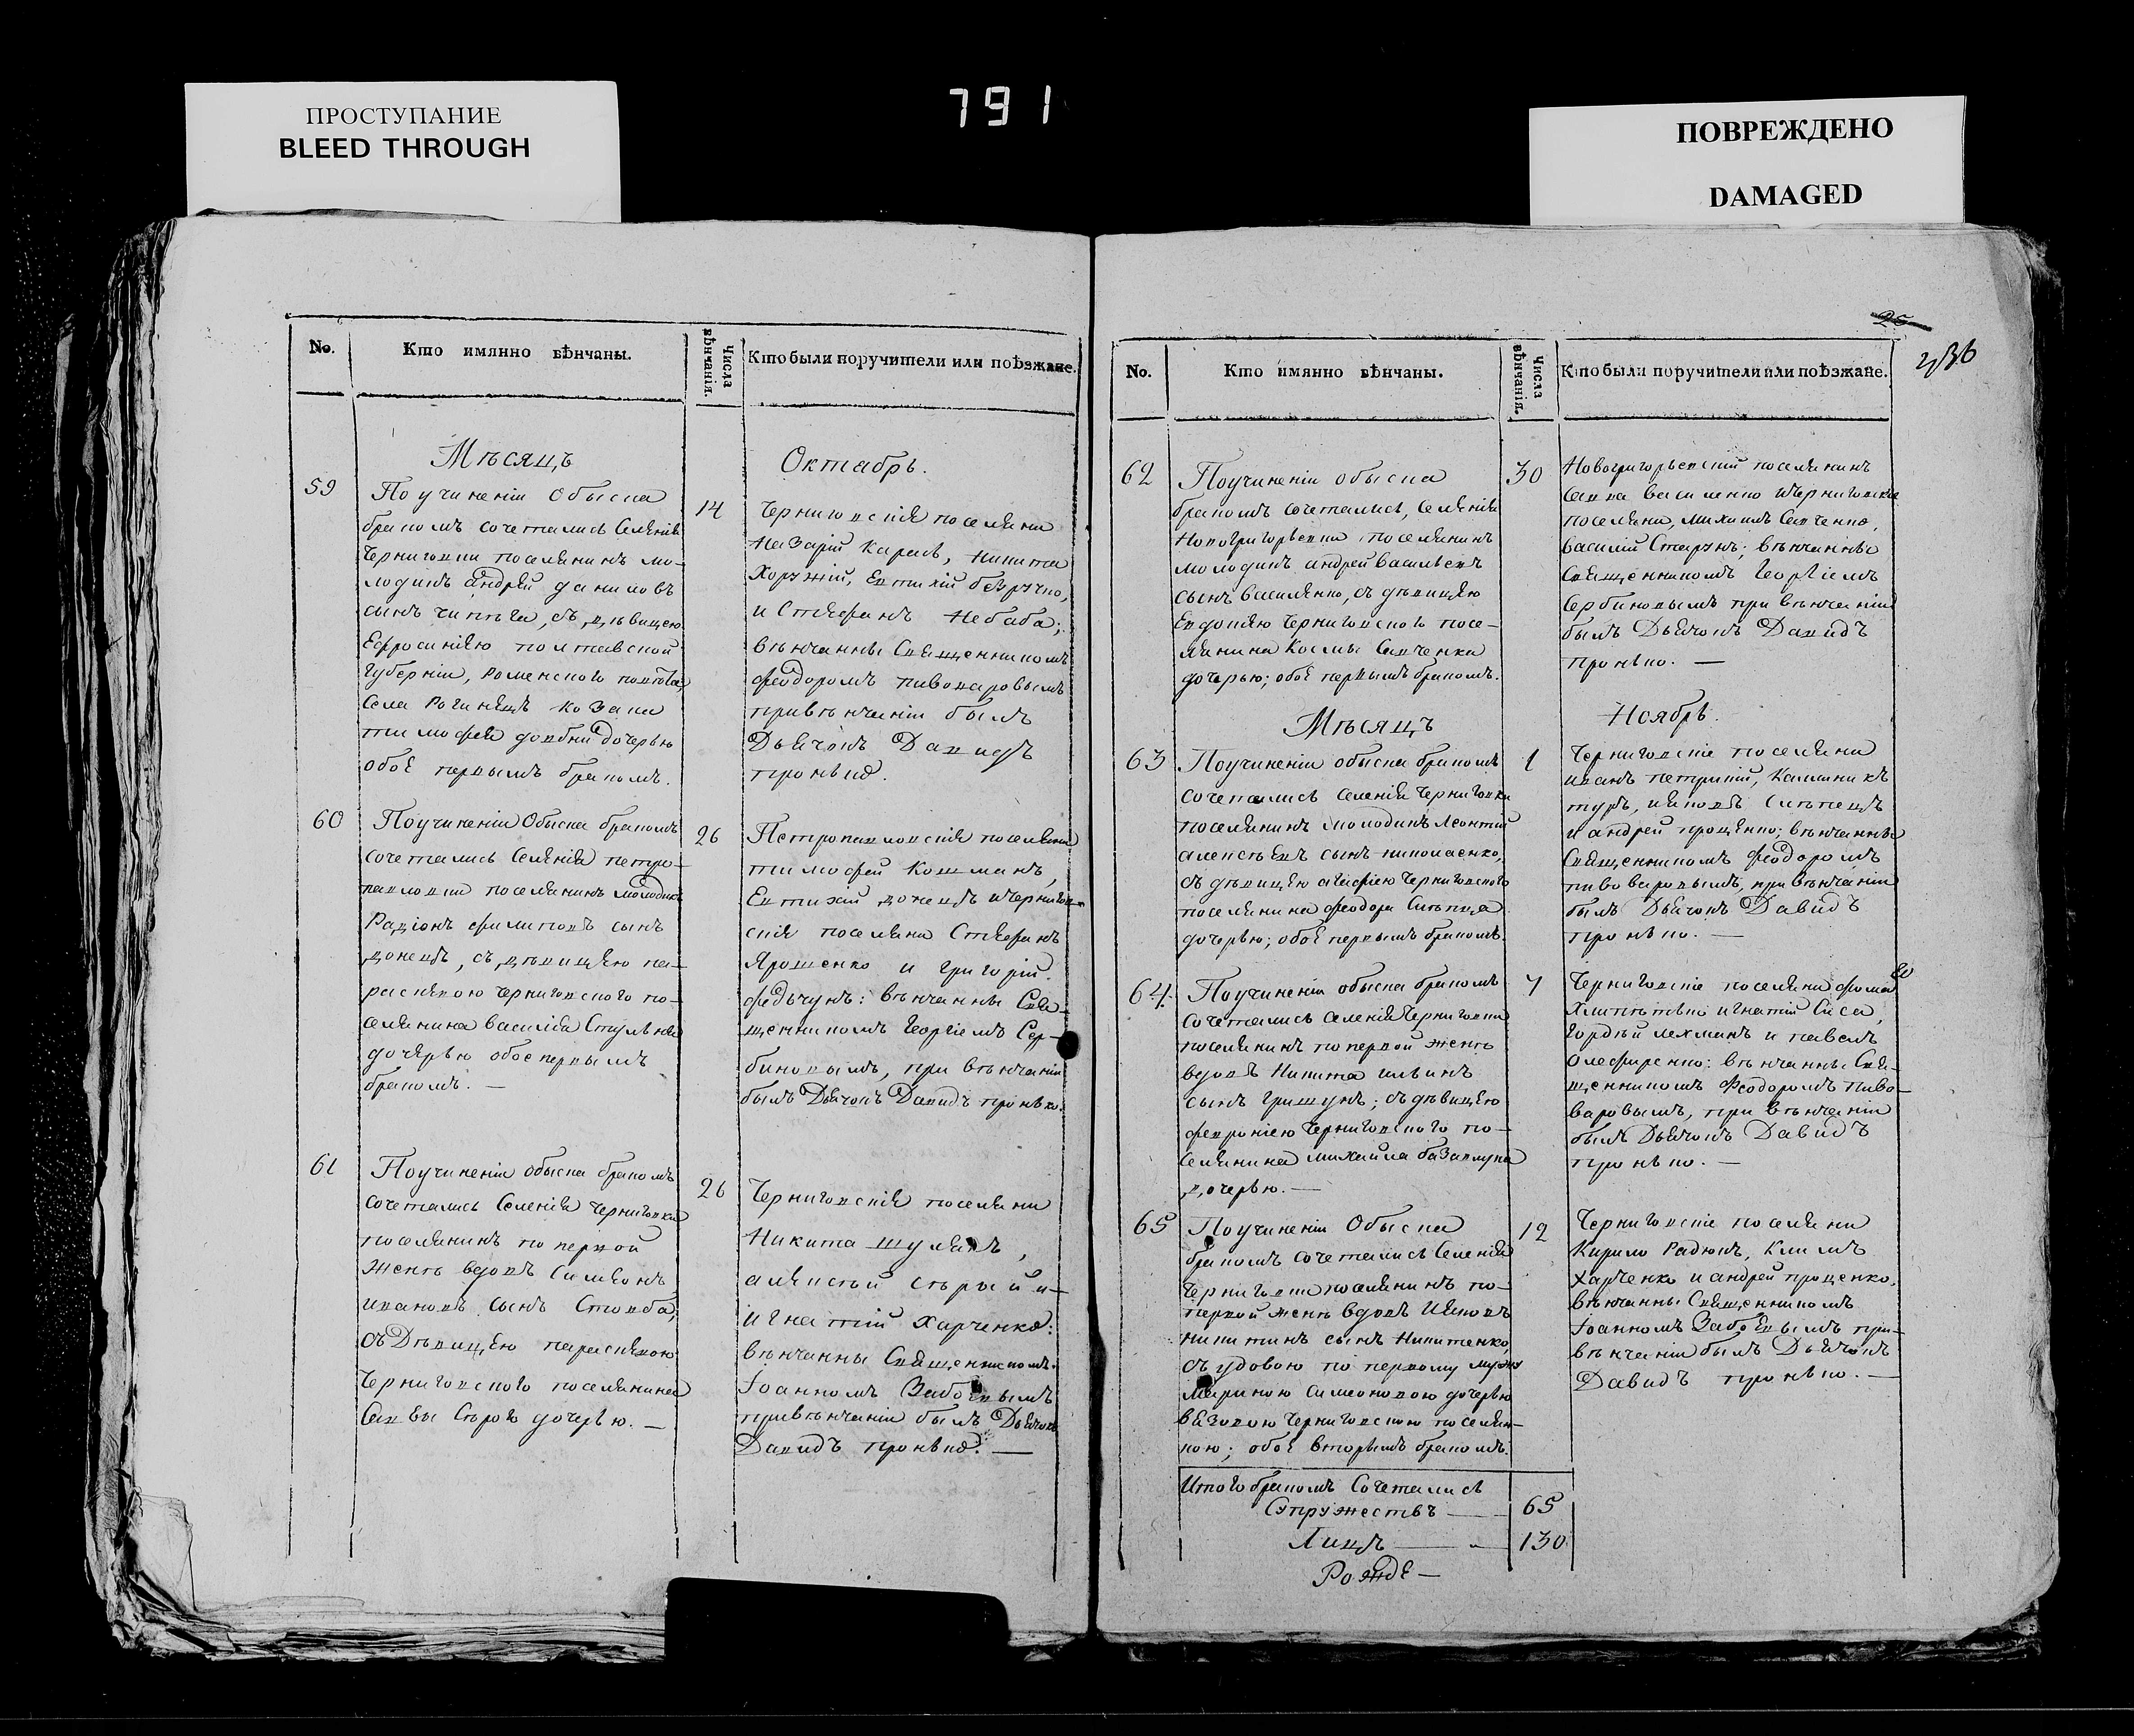 ПРОСТУПАНИЕ
BLEED THROUGH
791
ПОВРЕЖДЕНО
DAMAGED
No.
Кто имянно вѣнчаны.
Числа вѣнчанія.
Кто были поручители или поѣзжане.
Мѣсяцъ
Октабрь.
59
По учиненіи Обыска
бракомъ сочетались Селенія
Черниговки поселянинъ мо-
лодикъ андрей даниловъ
сынъ чипѣга, съ дѣвицею
Ефросиніею полтавской
Губерніи, Роменского повѣта,
Села Рогинецъ козака
тимофея довбни дочерью
обоє первымъ бракомъ.
14
Черниговскія поселяни
Назарій Карась, Никита
Хоружій, Евтихій безручко,
и Стефанъ Небаба;
вѣнчанны Священникомъ
феодоромъ пивоваровымъ
при вѣнчаніи былъ
Дьячокъ Давидъ
пронько.
60
По учиненіи Обыска бракомъ
сочетались Селенія петро-
павловки поселянинъ молодикъ
Радіонъ филиповъ сынъ
донецъ, съ дѣвицею па-
раскевою черниговского по-
селянина василія
дочерью обоє первымъ
бракомъ. —
26
Петропавловскія поселяни
тимофей Кошманъ,
Евтихій донецъ и чернигов-
скія поселяни Стефанъ
Ярошенко и григорій
федчунъ: вѣнчанны Свя-
щенникомъ Георгіемъ Сер-
биновымъ, при вѣнчаніи
былъ Дьячокъ Давидъ пронько.
61
По учиненіи обыска бракомъ
сочетались Селенія черниговки
поселянинъ по первой
женѣ вдовъ Симеонъ
ивановъ сынъ Стовба,
съ Дѣвицею параскевою
Черниговского поселянина
Саввы Сѣрого дочерью. —
26
Черниговскія поселяни
Никита шулякъ,
алексѣй сѣрый и
игнатій Харченко:
вѣнчанны Священникомъ
Іоанномъ Забоевымъ
при вѣнчаніи былъ Дьячокъ
Давидъ пронько. —
25
236
No.
Кто имянно вѣнчаны.
Числа вѣнчанія.
Кто были поручители или поѣзжане.
62
По учиненіи обыска
бракомъ сочетались, Селенія
Новогригорьевки поселянинъ
молодикъ андрей васильевъ
сынъ василенко, съ дѣвицею
Евдокією Черниговского посе-
лянина Космы Савченка
дочерью; обоє первымъ бракомъ.
30
Новогригорьевскій поселянинъ
Савва василенко и черниговскіе
поселяни, михаилъ Савченко,
василій Старунъ; вѣнчанны
Священникомъ Георгіемъ
Сербиновымъ при вѣнчаніи
былъ Дьячокъ Давидъ
пронько. —
Мѣсяцъ
Ноябрь.
63
По учиненіи обыска бракомъ
сочетались селенія Черниговки
поселянинъ молодикъ Леонтій
алексѣевъ сынъ николаенко,
съ дѣвицею агафією черниговского
поселянина феодора Сѣпца
дочерью; обоє первымъ бракомъ.
1
Черниговскіе поселяни
иванъ петрикій,
Сѣпецъ
и андрей проценко; вѣнчанны
Священникомъ феодоромъ
пивоваровымъ, при вѣнчаніи
былъ Дьячокъ Давидъ
пронько. —
64.
По учиненіи обыска бракомъ
сочетались селенія Черниговки
поселянинъ по первой женѣ
вдовъ Никита ильинъ
сынъ гришунъ; съ дѣвицею
февронією Черниговского по-
селянина михайла базавлука
дочерью. —
7
Черниговскіе поселяни фома
игнатій
Гордѣй лехманъ и павелъ
Олефиренко: вѣнчанны Свя-
щенникомъ Феодоромъ Пиво-
варовымъ, при вѣнчаніи
былъ Дьячокъ Давидъ
пронько. —
65
По учиненіи Обыска
бракомъ сочетались Селенія
Черниговки поселянинъ по-
первой женѣ вдовъ Ияковъ
никитинъ сынъ Никитенко,
съ удовою по первому мужу
Мариною Симеоновою дочерью
вязовою Черниговскою поселян-
кою; обоє вторымъ бракомъ.
12
Черниговскіе поселяни
Кирило Радюкъ, Климъ
Харченко и андрей проценко.
вѣнчанны Священникомъ
Іоанномъ Забоевымъ при-
вѣнчаніи былъ Дьячокъ
Давидъ пронько. —
Итого бракомъ Сочетались
Супружествъ — 65
Лицъ — 130
Рожде —